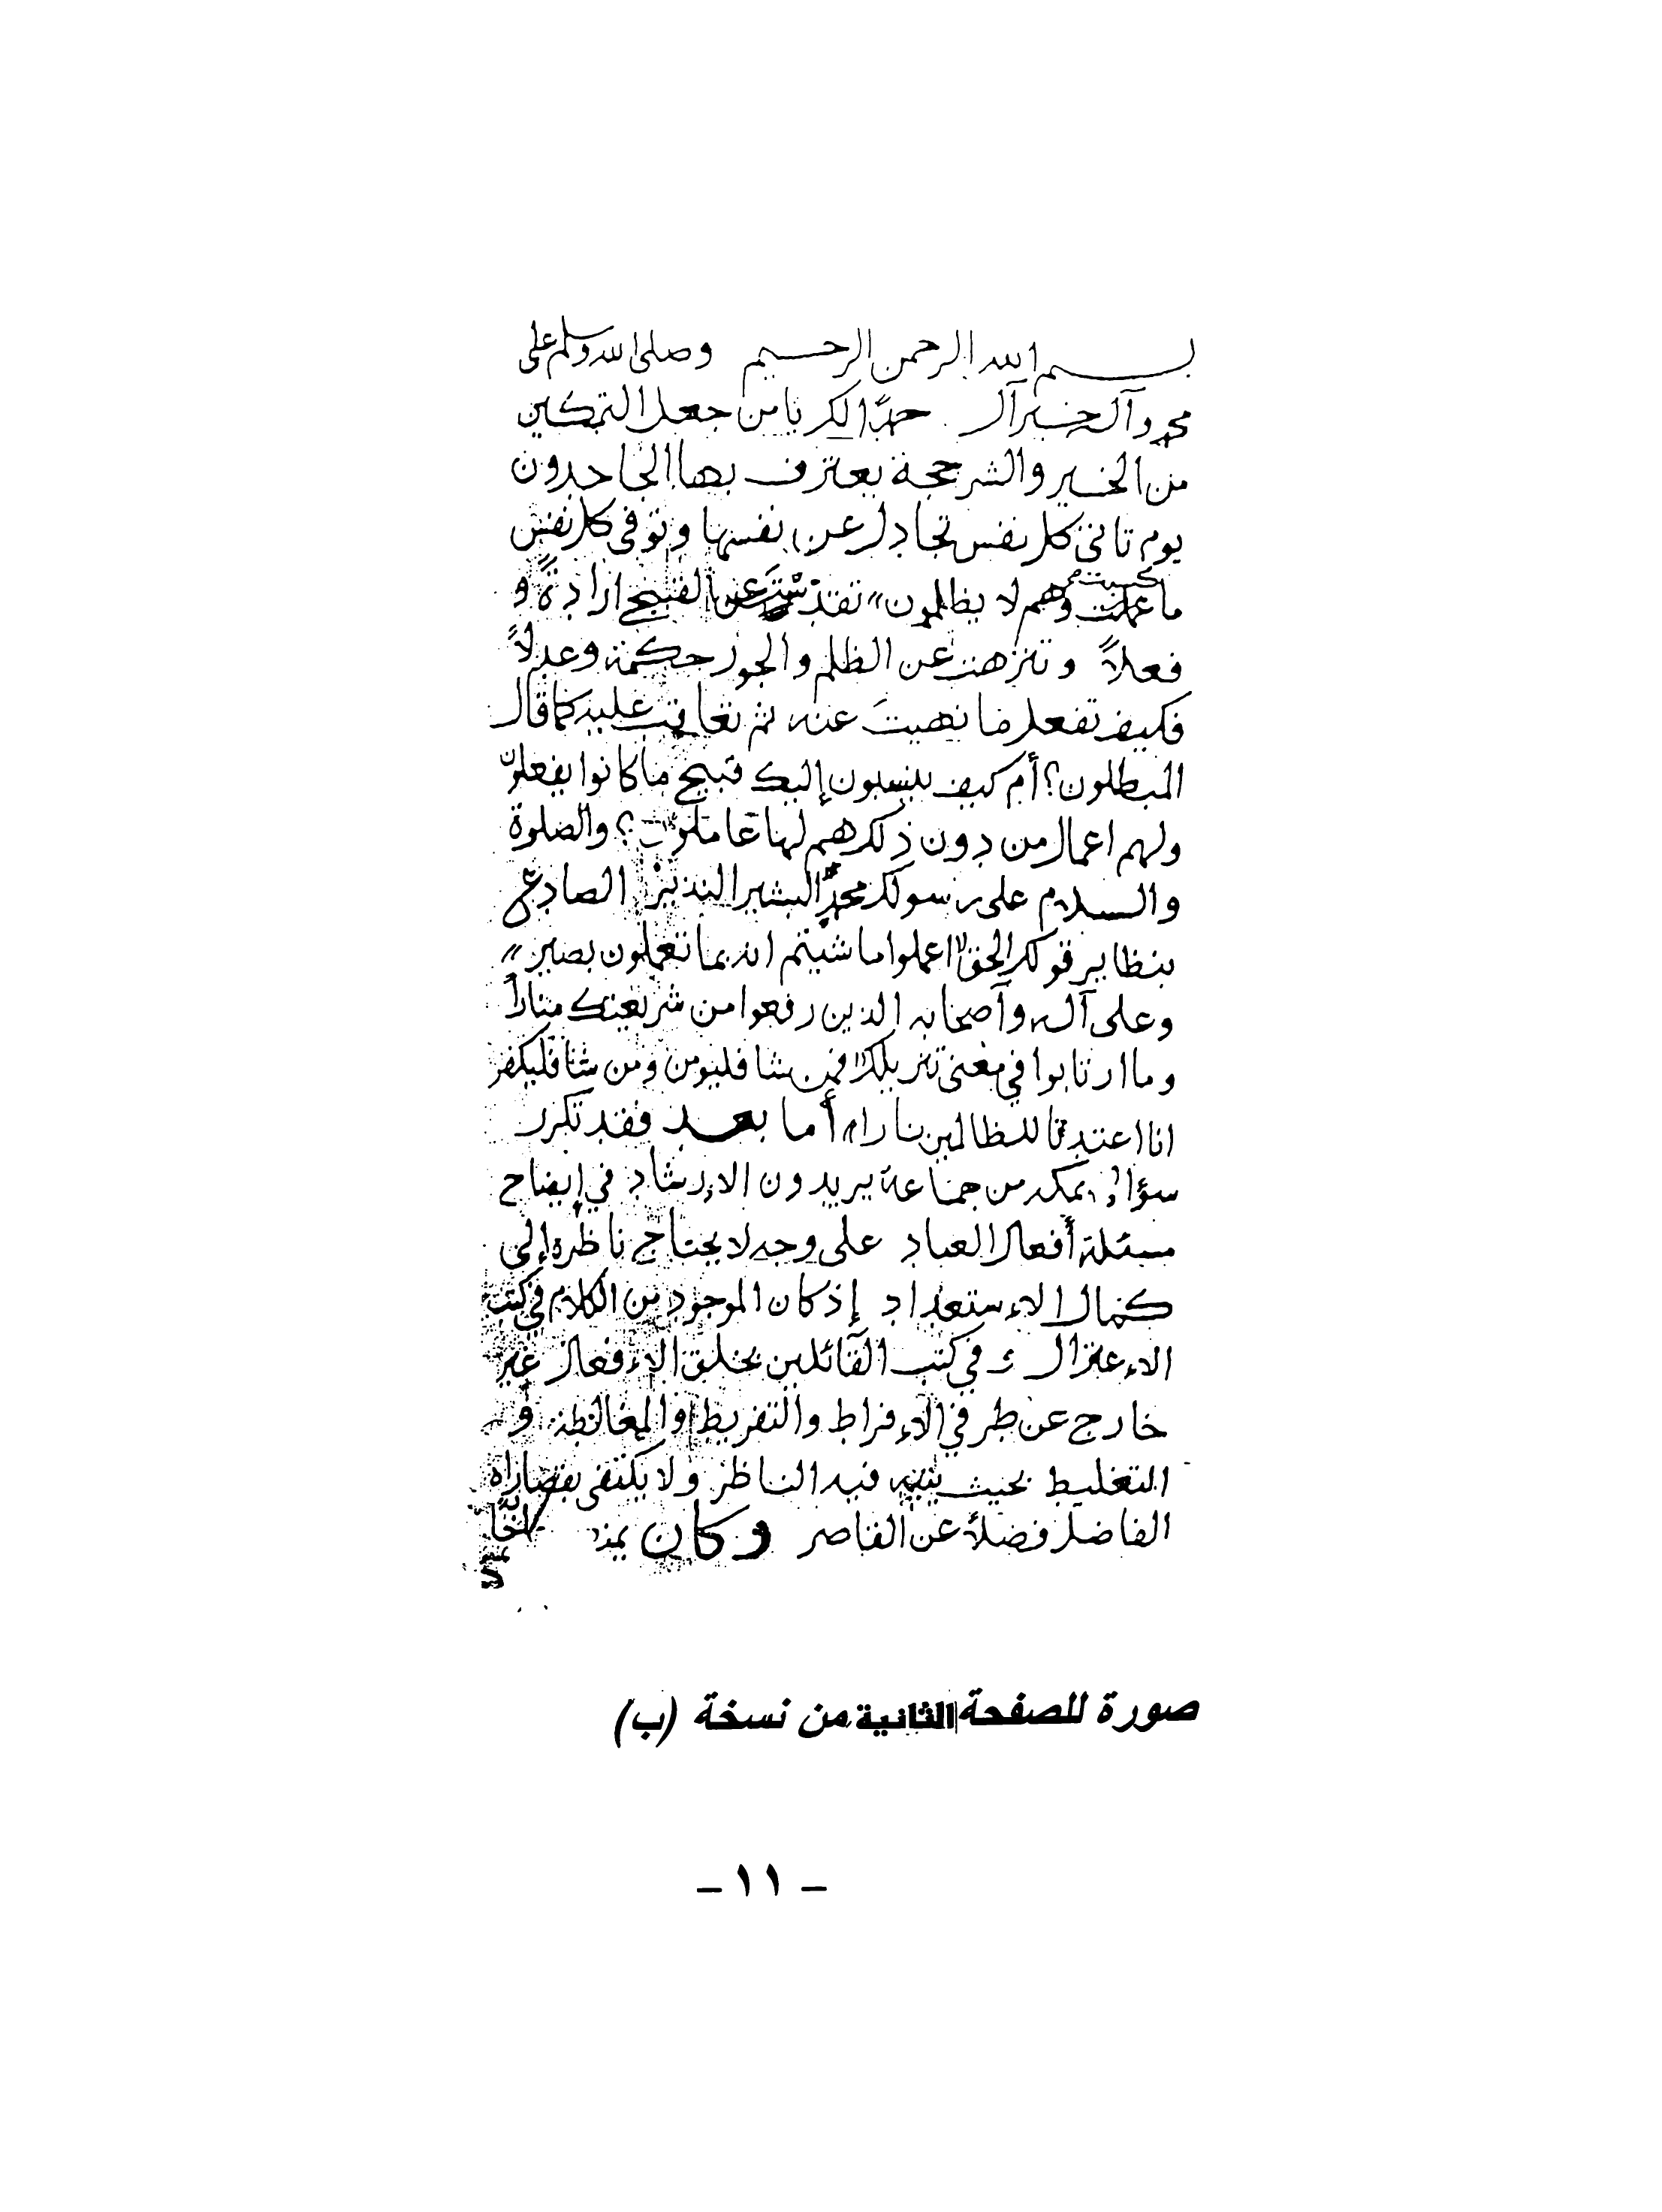 بسم الله الرحمن الرحيم وصلى الله وسلم على
محمد وآله خير آل حمدًا لك يا من جعل التمكين
من الخير والشر حجة يعترف بها الجاحدون
يوم تاتي كل نفس تجادل عن نفسها وتوفى كل نفس
ما عملت وهم لا يظلمون" تقدست عن القبيح ارادةً و
فعلاً وتنزهت عن الظلم والجور حكمة وعدلاً
فكيف تفعل ما نهيتَ عنه ثم تعاقب عليه كما قال
المبطلون؟ أم كيف ينسبون إليك قبيح ما كانوا يفعلون
ولهم اعمال من دون ذلك هم لها عاملون؟ والصلوة
والسلام على رسولك محمدٍ البشير النذير الصادع
بنظاير قولك الحق "اعملوا ما شيتم انه بما تعملون بصير"
وعلى آله وآصحابه الذين رفعوا من شريعتك مناراً
وما ارتابوا في معنى تنزيلك "فمن شا فليومن ومن شا فليكفر
انا اعتدنا للظالمين نارا" أما بعد فقد تكرر
سؤال من جماعة يريدون الاٍرشاد في إيضاح
مسئلة أفعال العباد على وجه لا يحتاج ناظره إلى
كمال الاٍستعداد إذ كان الموجود من الكلام في كتب
الاٍعتزال و في كتب القآئلين بخلق الاٍفعال غير
خارج عن طرفي الاٍفراط والتفريط والمغالطة و
التغليط بحيث يتيه فيه الناظر ولا يكتفي بقصاراه
الفاضل فضلاً عن القاصر وكان
صورة للصفحة الثانية من نسخة (ب)
- ١١ -